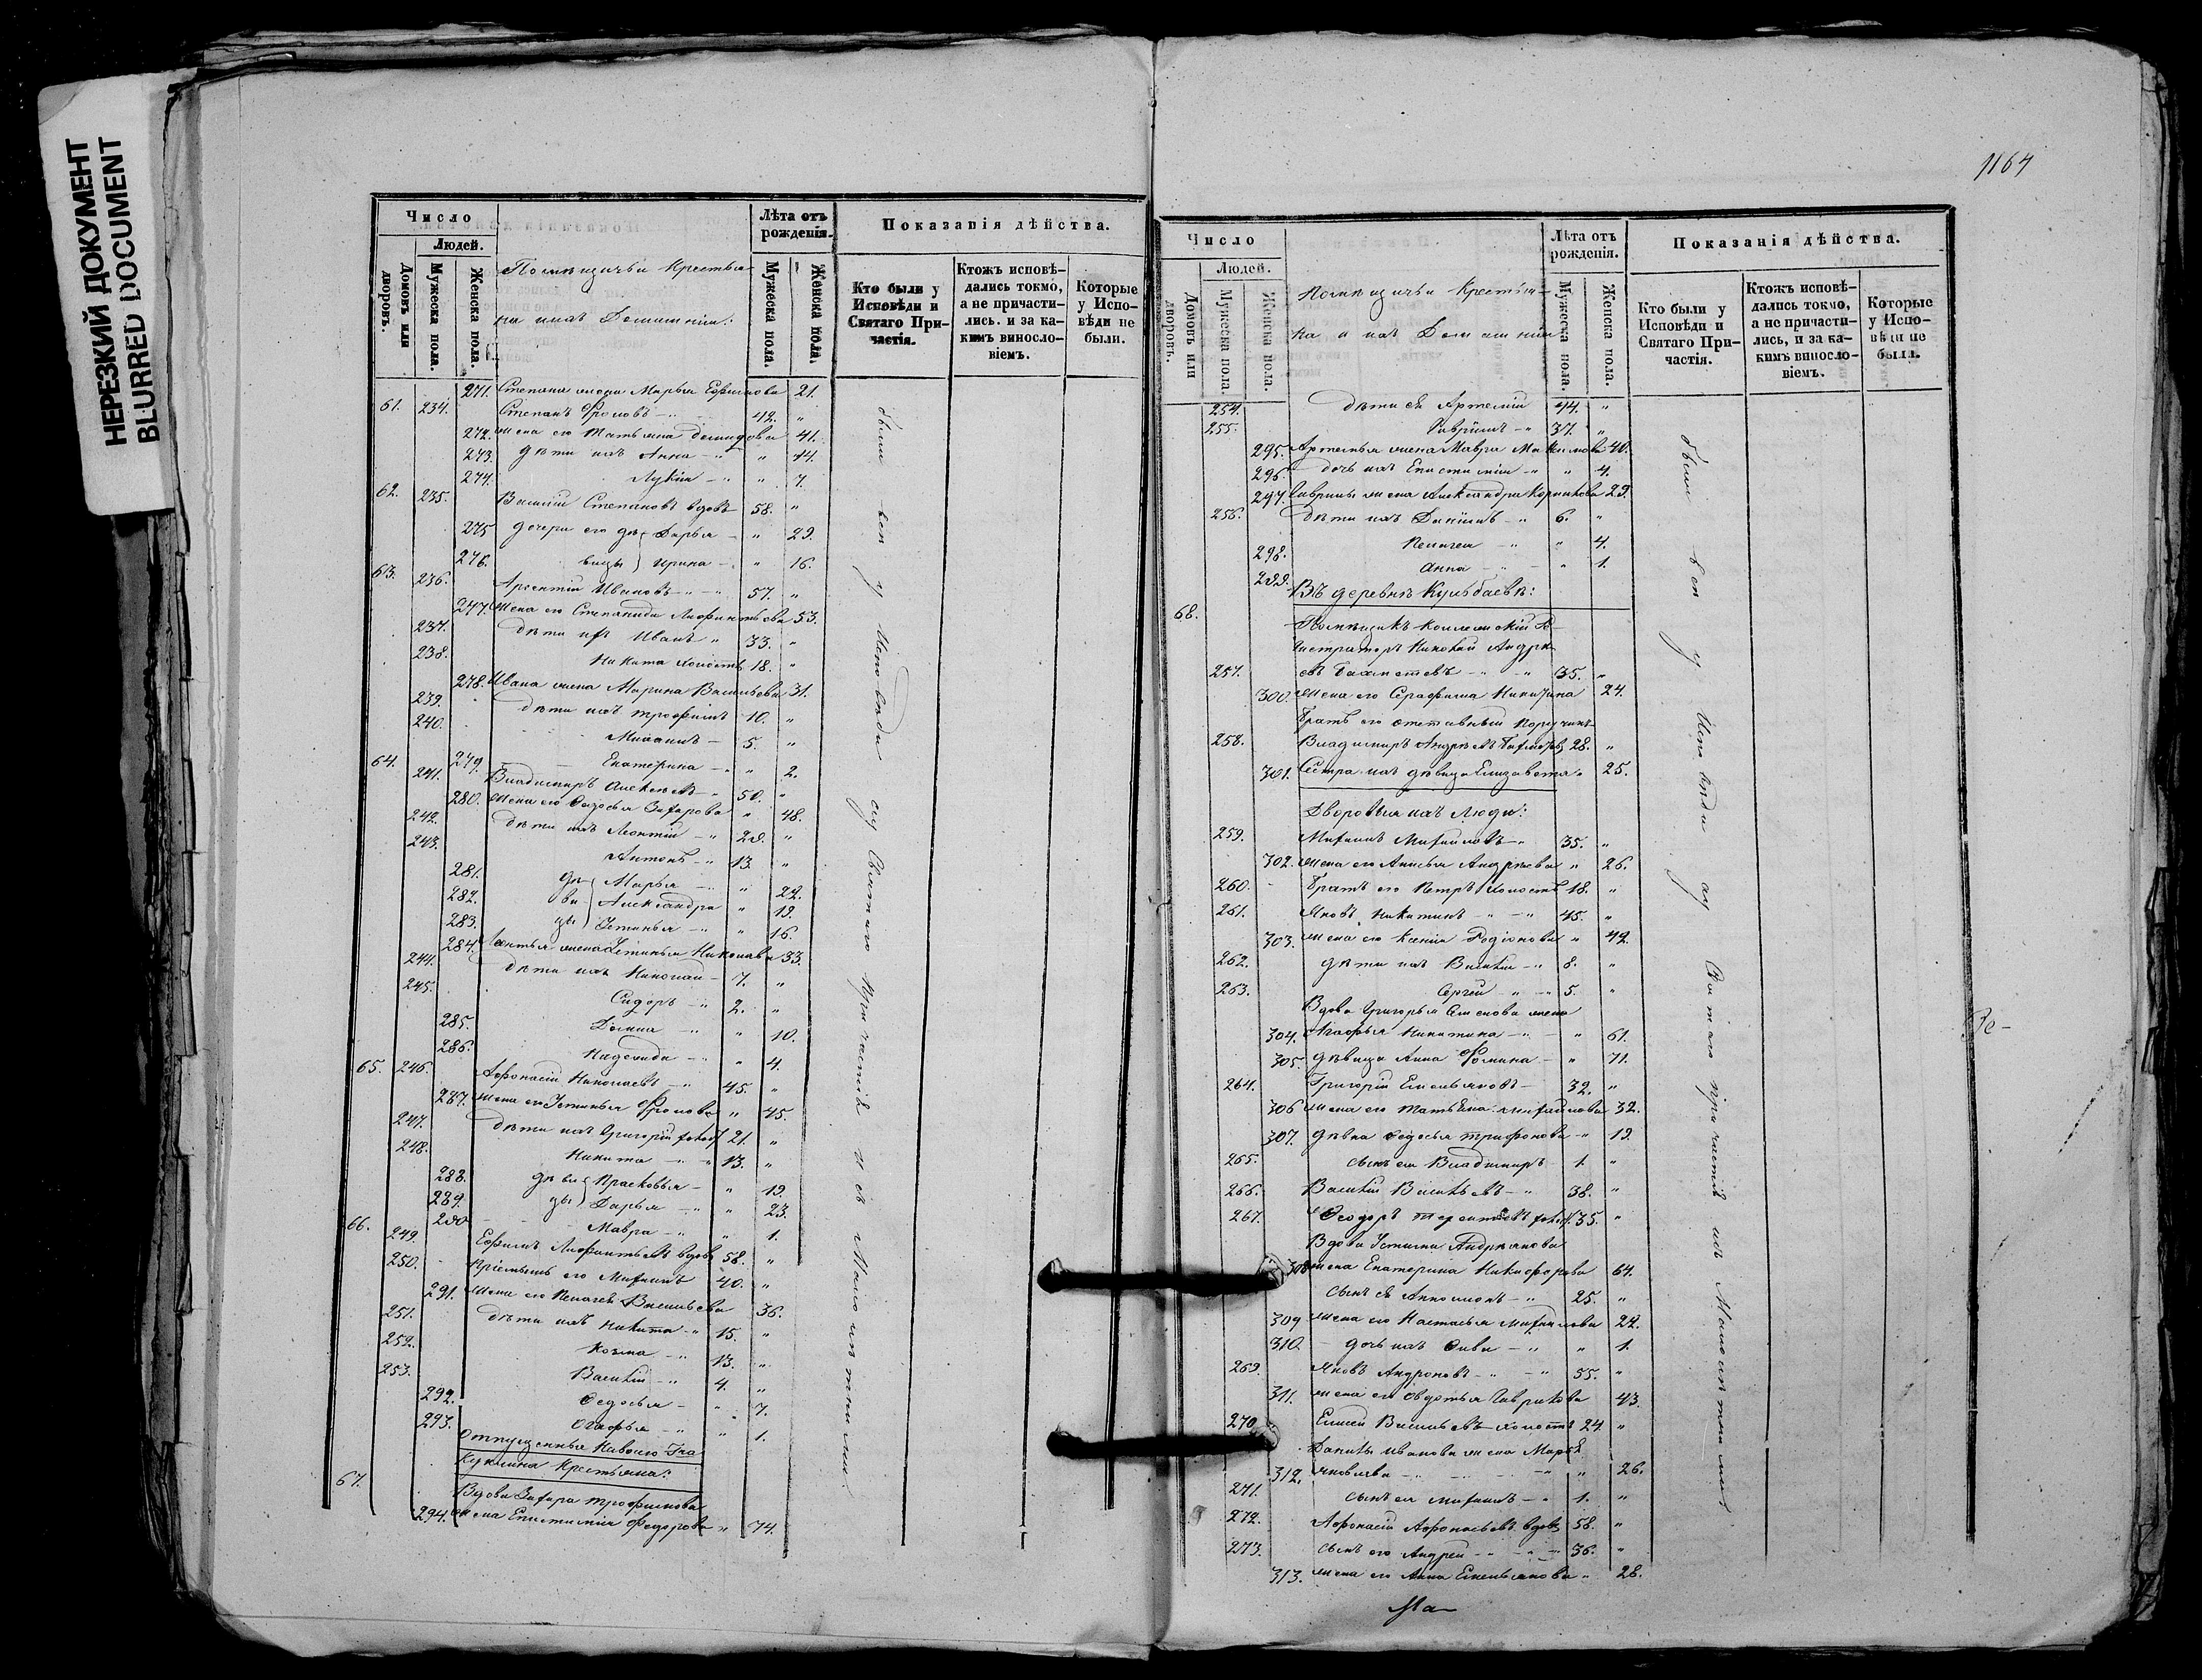 НЕРЕЗКИЙ ДОКУМЕНТ
BLURRED DOCUMENT
Число
Людей.
Домовъ или дворовъ.
Мужеска пола.
Женска пола.
Помѣщичьи Крестья-
ни ихъ Домашнiи:
Лѣта отъ рожденія.
Мужеска пола.
Женска пола.
Показанія дѣйства.
Кто были у Исповѣди и Святаго При-частія.
Ктожъ исповѣ-дались токмо, а не причасти-лись. и за ка-кимъ винослo-віемъ.
Которые у Испо-вѣди не были.
271. Степана жена Марья Ефимова 21.
61. 234. Степанъ Фроловъ 42. "
272. жена его Татьяна Демидова 41.
273. дѣти ихъ Анна " 14.
274. Лукія " 7.
62. 235. Василій Степановъ вдовъ 58. "
275 дочери его дѣ Дарья " 29.
276. вицы Ирина " 16.
63. 236. Арсентій Ивановъ 57. "
247. жена его Степанида Лаврентьева 53.
237. дѣти ихъ Иванъ 33. "
238. Никита холостъ 18. "
278. Ивана жена Марина Васильева 31.
239. дѣти ихъ Трофимъ 10. "
240. Михаилъ 5. "
279. Екатерина " 2.
64. 241. Владимиръ Алексѣевъ 50. "
280. жена его Федосья Захарова " 48.
242. дѣти ихъ Леонтій 28. "
243. Антонъ 13. "
281. дѣ Марья " 22.
282. ви Александра " 19.
283. цы Устинья " 16.
284. Леонтья жена Устинья Николаева 33.
244. дѣти ихъ Николай 7. "
245. Сидоръ 2. "
285. Домна " 10.
286. Надежда " 4.
65. 246. Афонасій Николаевъ 45. "
287. жена его Устинья Фролова " 45.
247. дѣти ихъ Григорій холост 21. "
248. Никита 13. "
288. дѣви Прасковья " 19.
289. цы Дарья " 23.
290 Мавра " 1.
66. 249. Ефимъ вдовъ 58. "
250. Пріемышъ его Михаилъ 40. "
291. жена его Пелагея Васильева 36.
251. дѣти ихъ Никита 15. "
252. Козма 13. "
253. Василій 4. "
292. Федосья " 7.
293. Агафья " 1.
Отпущенныя на волю Гна
Крестьяна:
67. Вдова Захара Трофимова
294. жена Епистимія Федорова " 74.
были вси у Исповѣди и у Святаго причастія и съ Малолѣтними.
1164
Число
Людей.
Домовъ или дворовъ.
Мужеска пола.
Женска пола.
Помѣщичьи Крестья-
на и ихъ Домашніи
Лѣта отъ рожденія.
Мужеска пола.
Женска пола.
Показанія дѣйства.
Кто были у Исповѣди и Святаго При-частія.
Ктожъ исповѣ-дались токмо, а не причасти-лись, и за ка-кимъ винослo-віемъ.
Которые у Испо-вѣди не были.
254. дѣти ея Артемій 44. "
255. Гаврiилъ 37. "
295. Артемья жена Мавра Максимова 40.
296 дочь ихъ Епистимія " 4.
297. Гаврилы жена Александра Корнилова 29.
256. дѣти ихъ Данiилъ 6. "
298. Пелагея " 4.
299. Анна " 1.
Въ деревнѣ Кульбаевѣ:
68. Помѣщикъ Коллежскій Ре-
гистраторъ Николай Андре-
257. евъ Бахметевъ 35. "
300. жена его Серафима Никитина 24.
Братъ его отставный Поручикъ
258. Владимиръ Андреевъ Бахметевъ 28. "
301. Сестра ихъ дѣвица Елизавета " 25.
Дворовыя ихъ люди:
259. Михаилъ Михайловъ 35. "
302. жена его Анисья Андреева " 26.
260. Братъ его Петръ холостъ 18. "
261. Яковъ Никитинъ 45. "
303. жена его Ксенія Родіонова " 42.
262. дѣти ихъ Василій 8. "
263. Сергей 5. "
Вдова Григорья Семенова жена
304. Агафья Никитина " 61.
305. дѣвица Анна Фомина " 71.
264. Григорій Емельяновъ 32. "
306 жена его Татьяна Михайлова 32.
307. дѣвка Федосья Трифонова " 19.
265. сынъ ея Владимиръ 1. "
266. Василій Васильевъ 38. "
267. Феодоръ Терентьевъ холост. 35. "
Вдова Устина Андреянова
308 жена Екатерина Никифорова 64.
сынъ ея 25. "
309 жена его Настасья Михайлова 22.
310. дочь ихъ " 1.
269. Яковъ Андроновъ 55. "
311. жена его Овдотья Гаврилова 43.
270 Елисей Васильевъ холостъ 24. "
Данилы Иванова жена Марья
312. Яковлева " 26.
271. сынъ ея Михаилъ 1. "
272. Афонасій Афонасьевъ вдовъ 58. "
273. сынъ его Андрей 36. "
313. жена его Анна Емельянова " 28.
были вси у Исповѣди и у Святаго причастія и съ Малолѣтними.